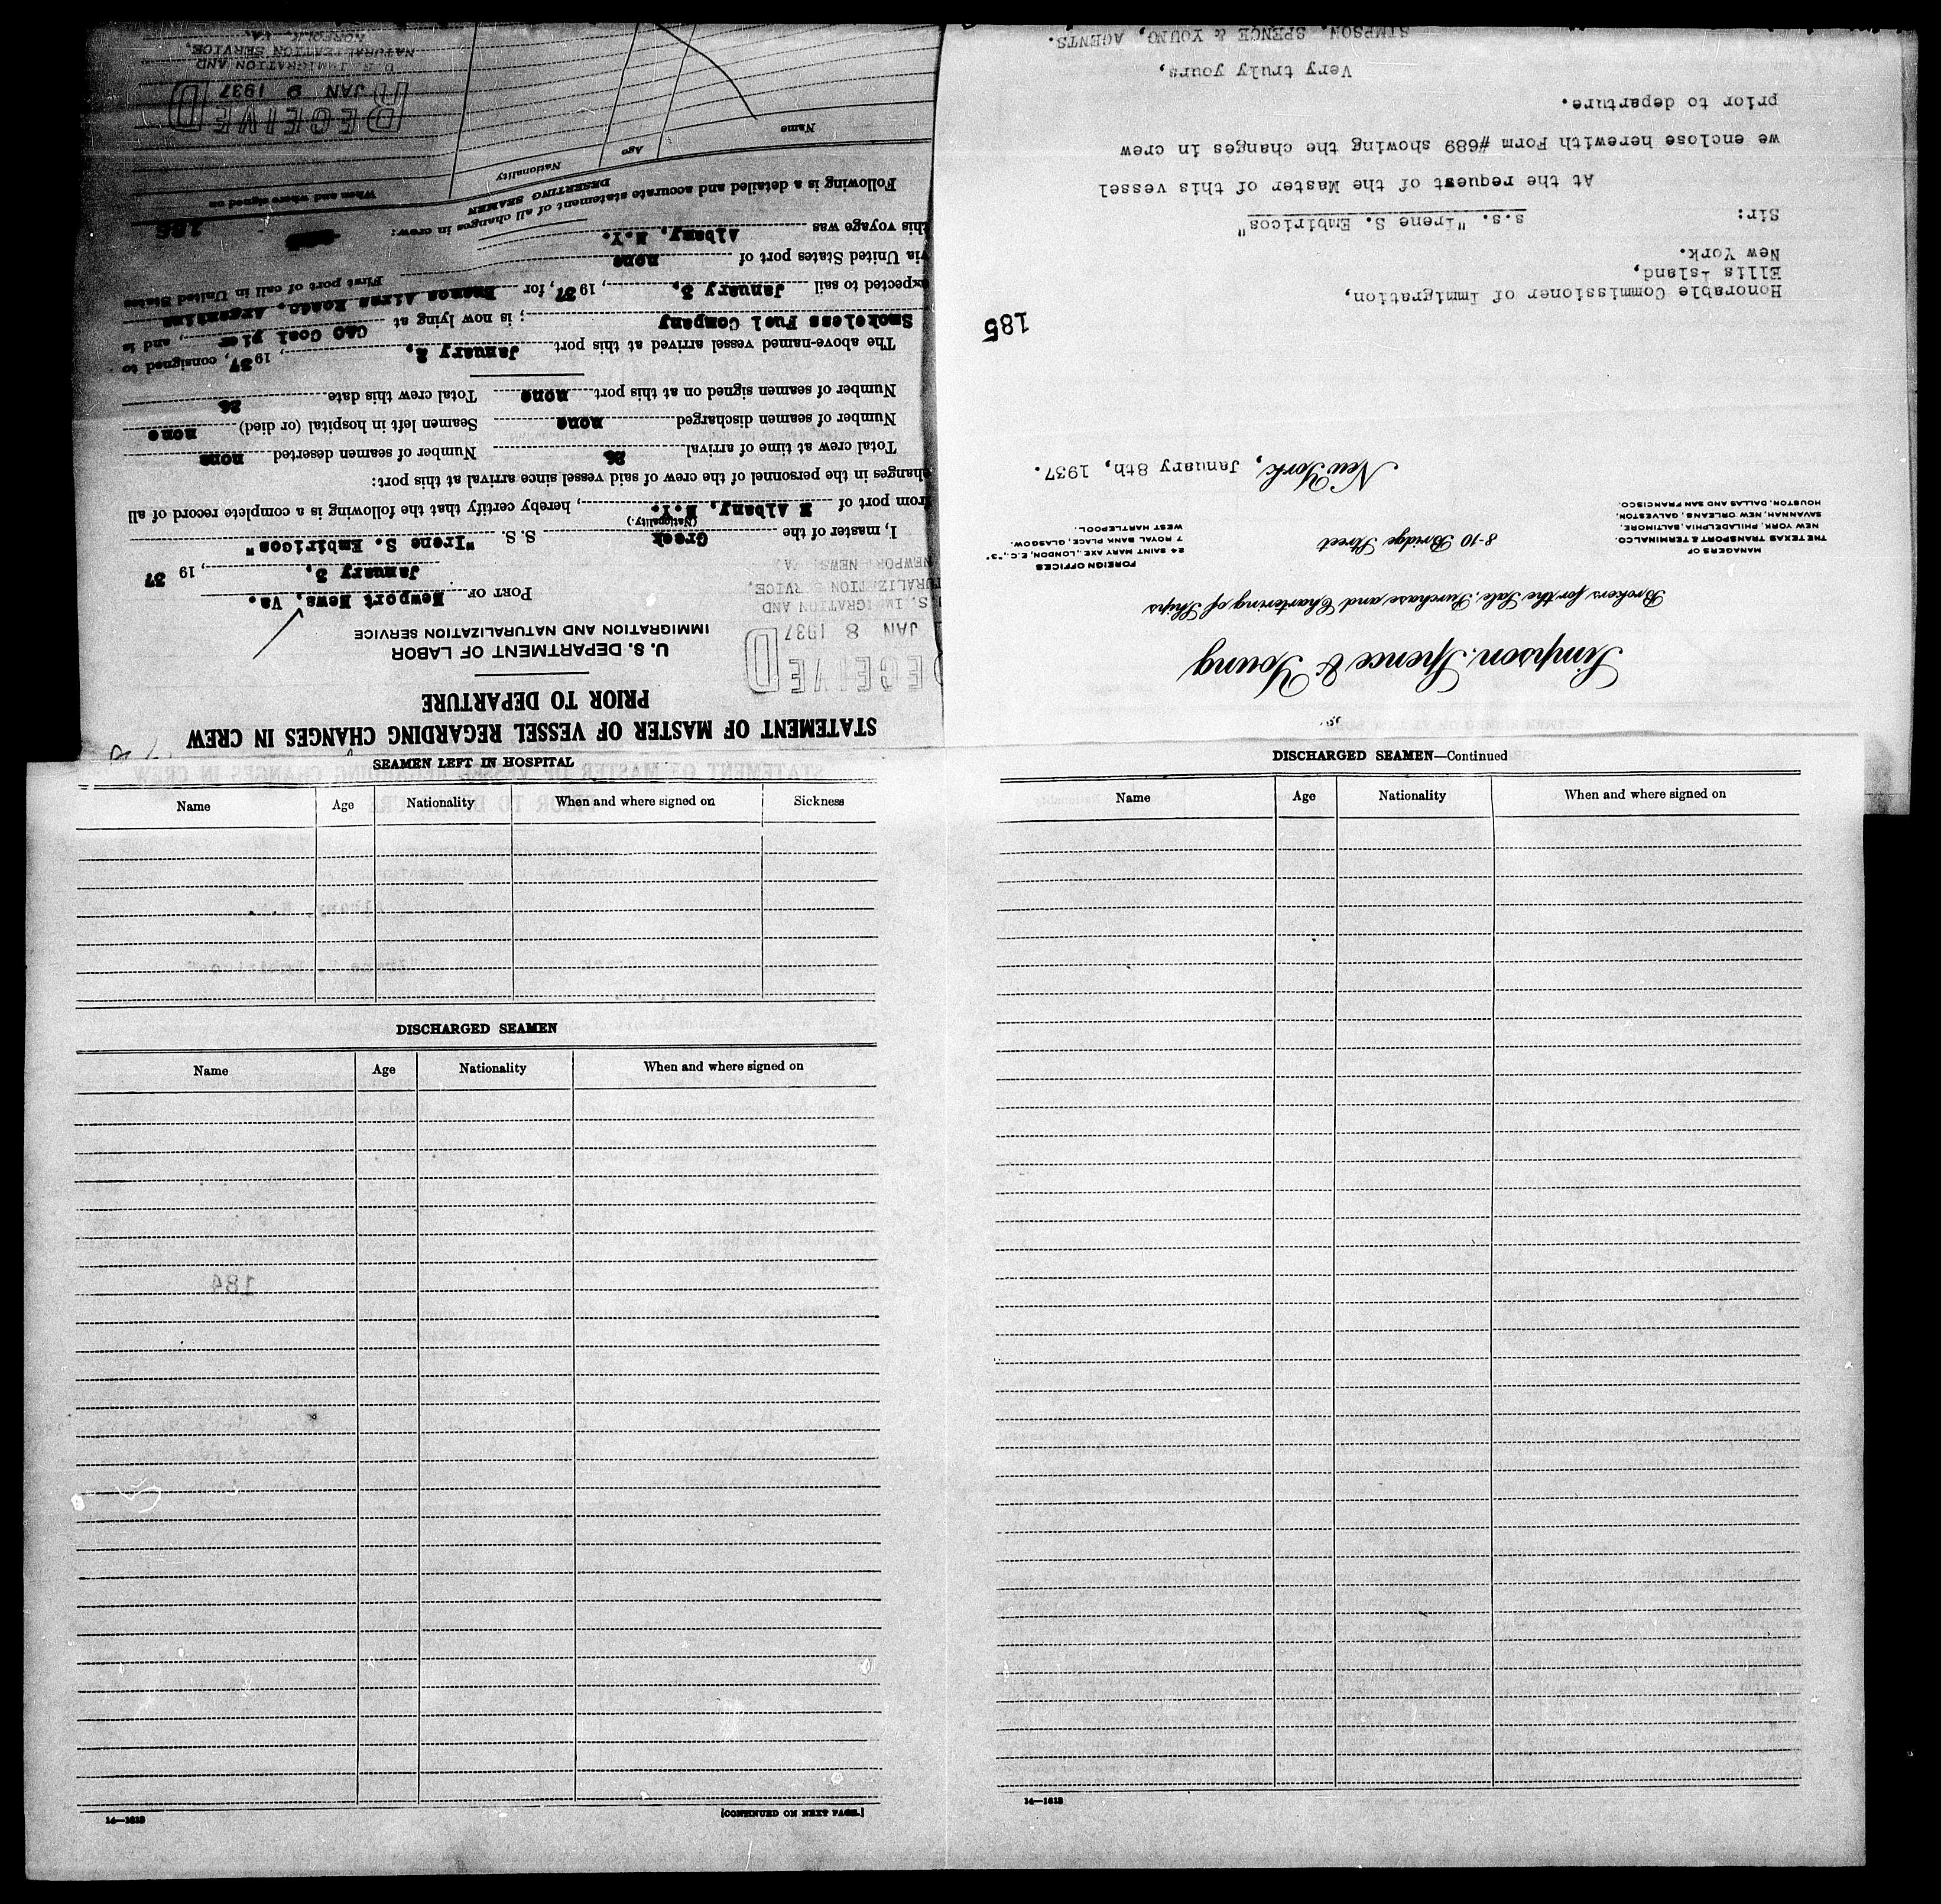 STATEMENT OF MASTER OF VESSEL REGARDING CHANGES IN CREW
PRIOR TO DEPARTURE
U. S. DEPARTMENT OF LABOR
IMMIGRATION AND NATURALIZATION SERVICE
ECEIVED
JAN 8 1937
S. IMMIGRATION AND
NATURALIZATION SERVICE,
NEWPORT NEWS, VA.
PORT OF Newport News, Va.
January 3, 19 37
I, master of the Greek S. S. "Irene S. Embiricos"
(Nationality.)
from port of Albany, N.Y., hereby certify that the following is a complete record of all
changes in the personnel of the crew of said vessel since arrival at this port:
Total crew at time of arrival 26 Number of seamen deserted none
Number of seamen discharged none Seamen left in hospital (or died) none
Number of seamen signed on at this port none Total crew this date 26
The above-named vessel arrived at this port January 2, 1937, consigned to
Smokeless Fuel Company; is now lying at C&O Coal pier, and is
expected to sail January 3, 1937, for Buenos Aires Roads, Argentina
via United States port of none First port of call in United States
this voyage was Albany, N.Y.
Following is a detailed and accurate statement of all changes in crew:
186
DESERTING SEAMEN
Name Age Nationality When and where signed on
RECEIVED
JAN 9 1937
U. S. IMMIGRATION AND
NATURALIZATION SERVICE,
NORFOLK, VA.
Simpson, Spence & Young
Brokers for the Sale, Purchase and Chartering of Ships
8-10 Bridge Street
MANAGERS OF
THE TEXAS TRANSPORT & TERMINAL CO.
NEW YORK, PHILADELPHIA, BALTIMORE,
SAVANNAH, NEW ORLEANS, GALVESTON,
HOUSTON, DALLAS AND SAN FRANCISCO.
FOREIGN OFFICES
24 SAINT MARY AXE., LONDON, E.C., "3"
7 ROYAL BANK PLACE, GLASGOW.
WEST HARTLEPOOL.
New York, January 8th, 1937.
185
Honorable Commissioner of Immigration,
Ellis Island,
New York.
Sir:
s.s. "Irene S. Embiricos"
At the request of the Master of this vessel
we enclose herewith Form #689 showing the changes in crew
prior to departure.
Very truly yours,
SIMPSON, SPENCE & YOUNG, AGENTS.
SEAMEN LEFT IN HOSPITAL
Name Age Nationality When and where signed on Sickness
DISCHARGED SEAMEN
Name Age Nationality When and where signed on
184
14—1613
[CONTINUED ON NEXT PAGE.]
DISCHARGED SEAMEN—Continued
Name Age Nationality When and where signed on
14—1613